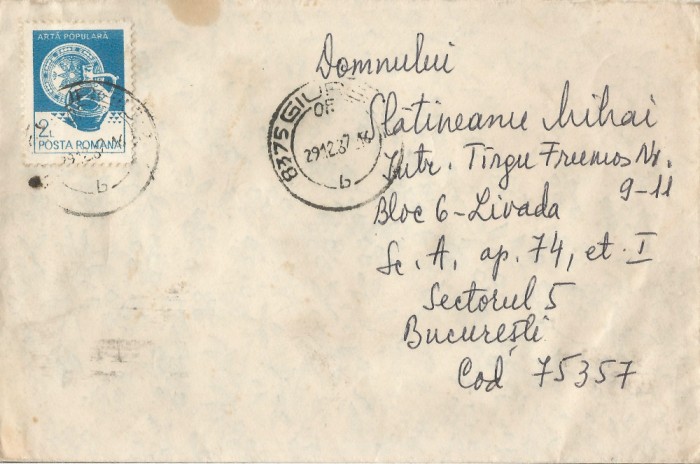 ARTĂ POPULARĂ
2L
POSTA ROMANA
8375 GIUR
OF
29.12.87
b
b
Domnului
Slătineanu Mihai
Intr. Tîrgu Frumos Nr.
9-11
Bloc 6-Livada
Sc. A, ap. 74, et. I
Sectorul 5
București
Cod 75357